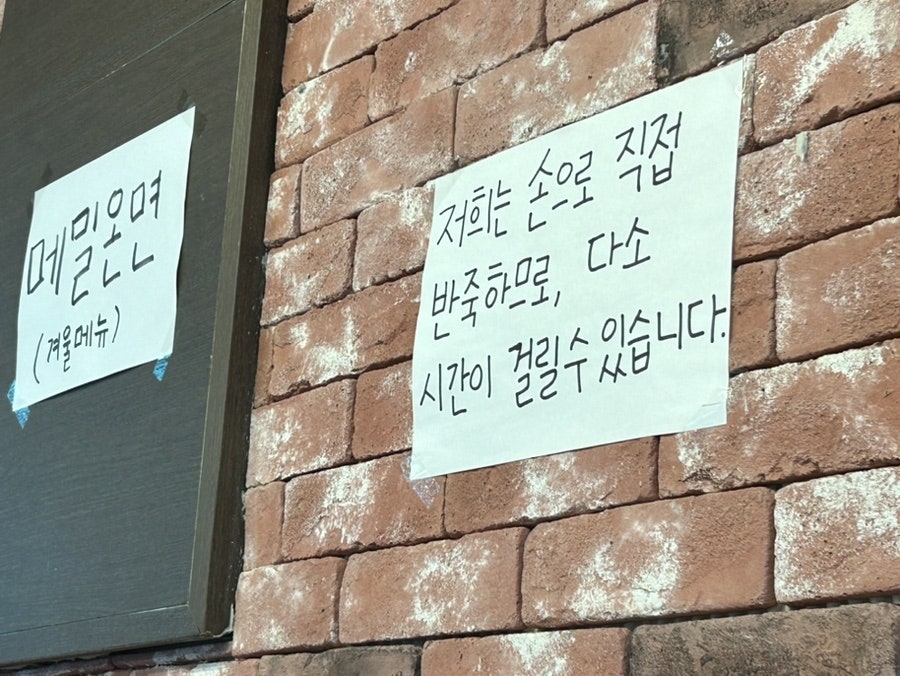 메밀온면
(겨울메뉴)
저희는 손으로 직접
반죽하므로, 다소
시간이 걸릴수있습니다.